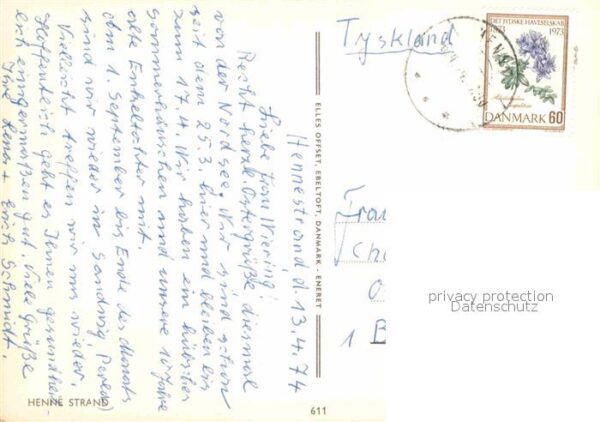 Hennestrand, d. 13.4.74
Liebe Frau Wiering!
Recht herzl. Ostergrüße diesmal
von der Nordsee. Wir sind schon
seit dem 25.3. hier und bleiben bis
zum 17.4. Wir haben ein hübsches
Sommerhäuschen und unsere 10 Jahre
alte Enkeltochter mit.
Am 1. September bis Ende des Monats
sind wir wieder in Sondwig, Perled)
Vielleicht treffen wir uns wieder.
Hoffentlich geht es Ihnen gesundheit-
lich einigermaßen gut. Viele Grüße
Ihre Lena + Erich Schmidt.
HENNE STRAND
ELLES OFFSET, EBELTOFT, DANMARK - ENERET
611
Tyskland
DET JYDSKE HAVESELSKAB
1873 1973
DANMARK 60
Frau
Ch
O
1 B
privacy protection
Datenschutz